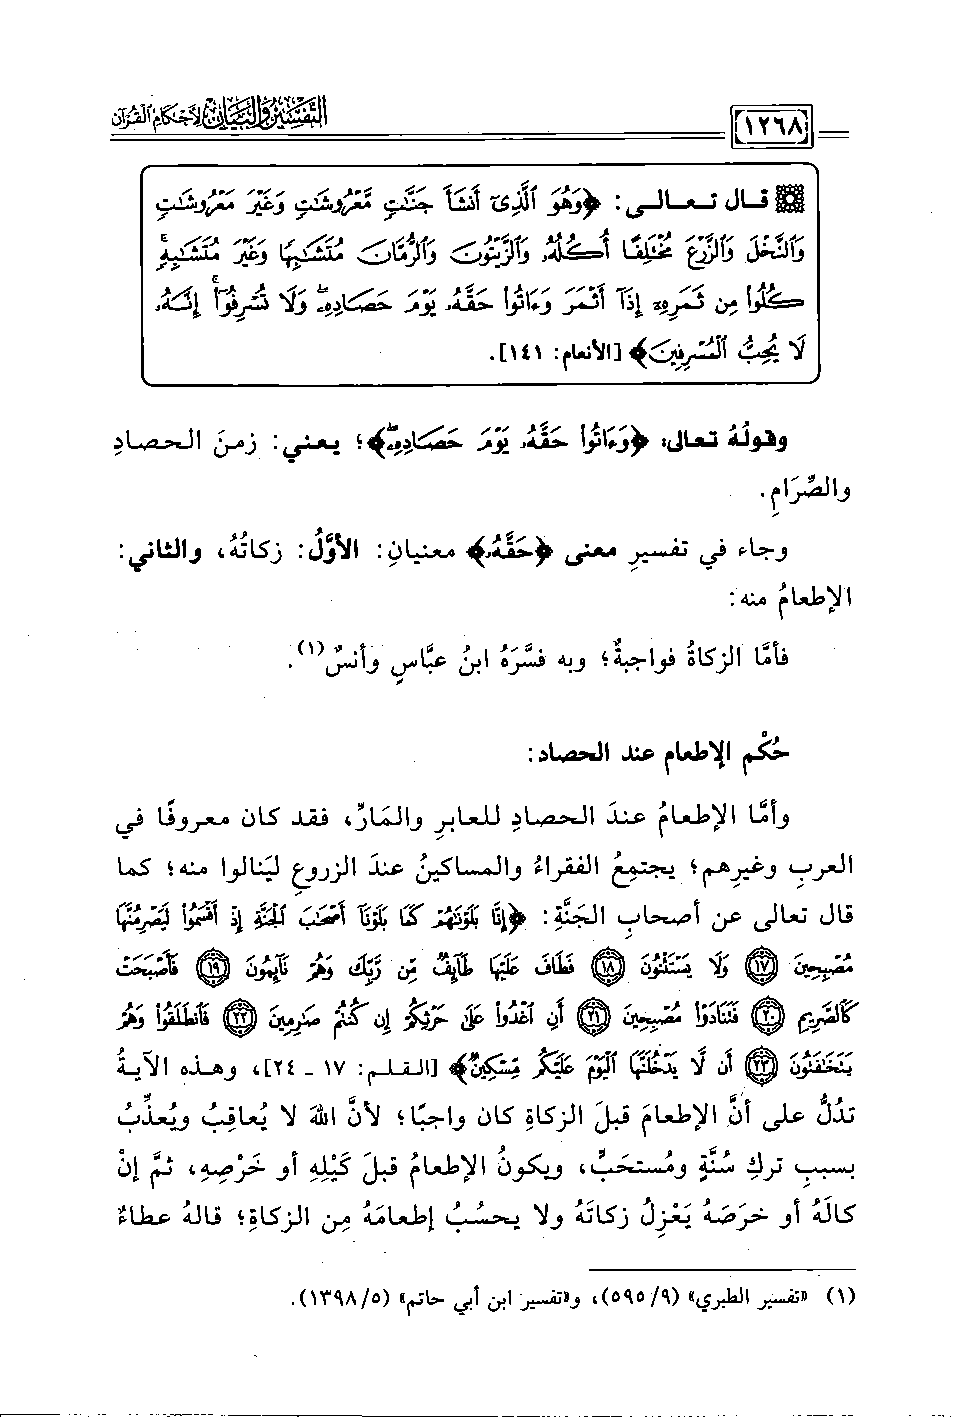 التفسير والبيان لأحكام القرآن
١٢٦٨
قال تعالى: ﴿وَهُوَ ٱلَّذِىٓ أَنشَأَ جَنَّٰتٍ مَّعْرُوشَٰتٍ وَغَيْرَ مَعْرُوشَٰتٍ
وَٱلنَّخْلَ وَٱلزَّرْعَ مُخْتَلِفًا أُكُلُهُۥ وَٱلزَّيْتُونَ وَٱلرُّمَّانَ مُتَشَٰبِهًا وَغَيْرَ مُتَشَٰبِهٍ ۚ
كُلُوا۟ مِن ثَمَرِهِۦٓ إِذَآ أَثْمَرَ وَءَاتُوا۟ حَقَّهُۥ يَوْمَ حَصَادِهِۦ ۖ وَلَا تُسْرِفُوٓا۟ ۚ إِنَّهُۥ
لَا يُحِبُّ ٱلْمُسْرِفِينَ﴾ [الأنعام: ١٤١].
وقولُهُ تعالى: ﴿وَءَاتُوا۟ حَقَّهُۥ يَوْمَ حَصَادِهِۦ ۖ﴾؛ يعني: زمنَ الحصادِ
والصِّرَامِ.
وجاء في تفسيرِ معنى ﴿حَقَّهُۥ﴾ معنيانِ: الأوَّلُ: زكاتُهُ، والثاني:
الإطعامُ منه:
فأمَّا الزكاةُ فواجبةٌ؛ وبه فسَّرَهُ ابنُ عبَّاسٍ وأنسٌ(١).
حُكْم الإطعام عند الحصاد:
وأمَّا الإطعامُ عندَ الحصادِ للعابرِ والمَارِّ، فقد كان معروفًا في
العربِ وغيرِهم؛ يجتمِعُ الفقراءُ والمساكينُ عندَ الزروعِ ليَنالوا منه؛ كما
قال تعالى عن أصحابِ الجَنَّةِ: ﴿إِنَّا بَلَوْنَٰهُمْ كَمَا بَلَوْنَآ أَصْحَٰبَ ٱلْجَنَّةِ إِذْ أَقْسَمُوا۟ لَيَصْرِمُنَّهَا
مُصْبِحِينَ ١٧ وَلَا يَسْتَثْنُونَ ١٨ فَطَافَ عَلَيْهَا طَآئِفٌ مِّن رَّبِّكَ وَهُمْ نَآئِمُونَ ١٩ فَأَصْبَحَتْ
كَٱلصَّرِيمِ ٢٠ فَتَنَادَوْا۟ مُصْبِحِينَ ٢١ أَنِ ٱغْدُوا۟ عَلَىٰ حَرْثِكُمْ إِن كُنتُمْ صَٰرِمِينَ ٢٢ فَٱنطَلَقُوا۟ وَهُمْ
يَتَخَٰفَتُونَ ٢٣ أَن لَّا يَدْخُلَنَّهَا ٱلْيَوْمَ عَلَيْكُم مِّسْكِينٌ﴾ [القلم: ١٧ ـ ٢٤]، وهذه الآيةُ
تدُلُّ على أنَّ الإطعامَ قبلَ الزكاةِ كان واجبًا؛ لأنَّ اللهَ لا يُعاقِبُ ويُعذِّبُ
بسببِ تركِ سُنَّةٍ ومُستحَبٍّ، ويكونُ الإطعامُ قبلَ كَيْلِهِ أو خَرْصِهِ، ثمَّ إنْ
كالَهُ أو خرَصَهُ يَعْزِلُ زكاتَهُ ولا يحسُبُ إطعامَهُ مِن الزكاةِ؛ قالهُ عطاءٌ
(١) «تفسير الطبري» (٩/٥٩٥)، و«تفسير ابن أبي حاتم» (٥/١٣٩٨).